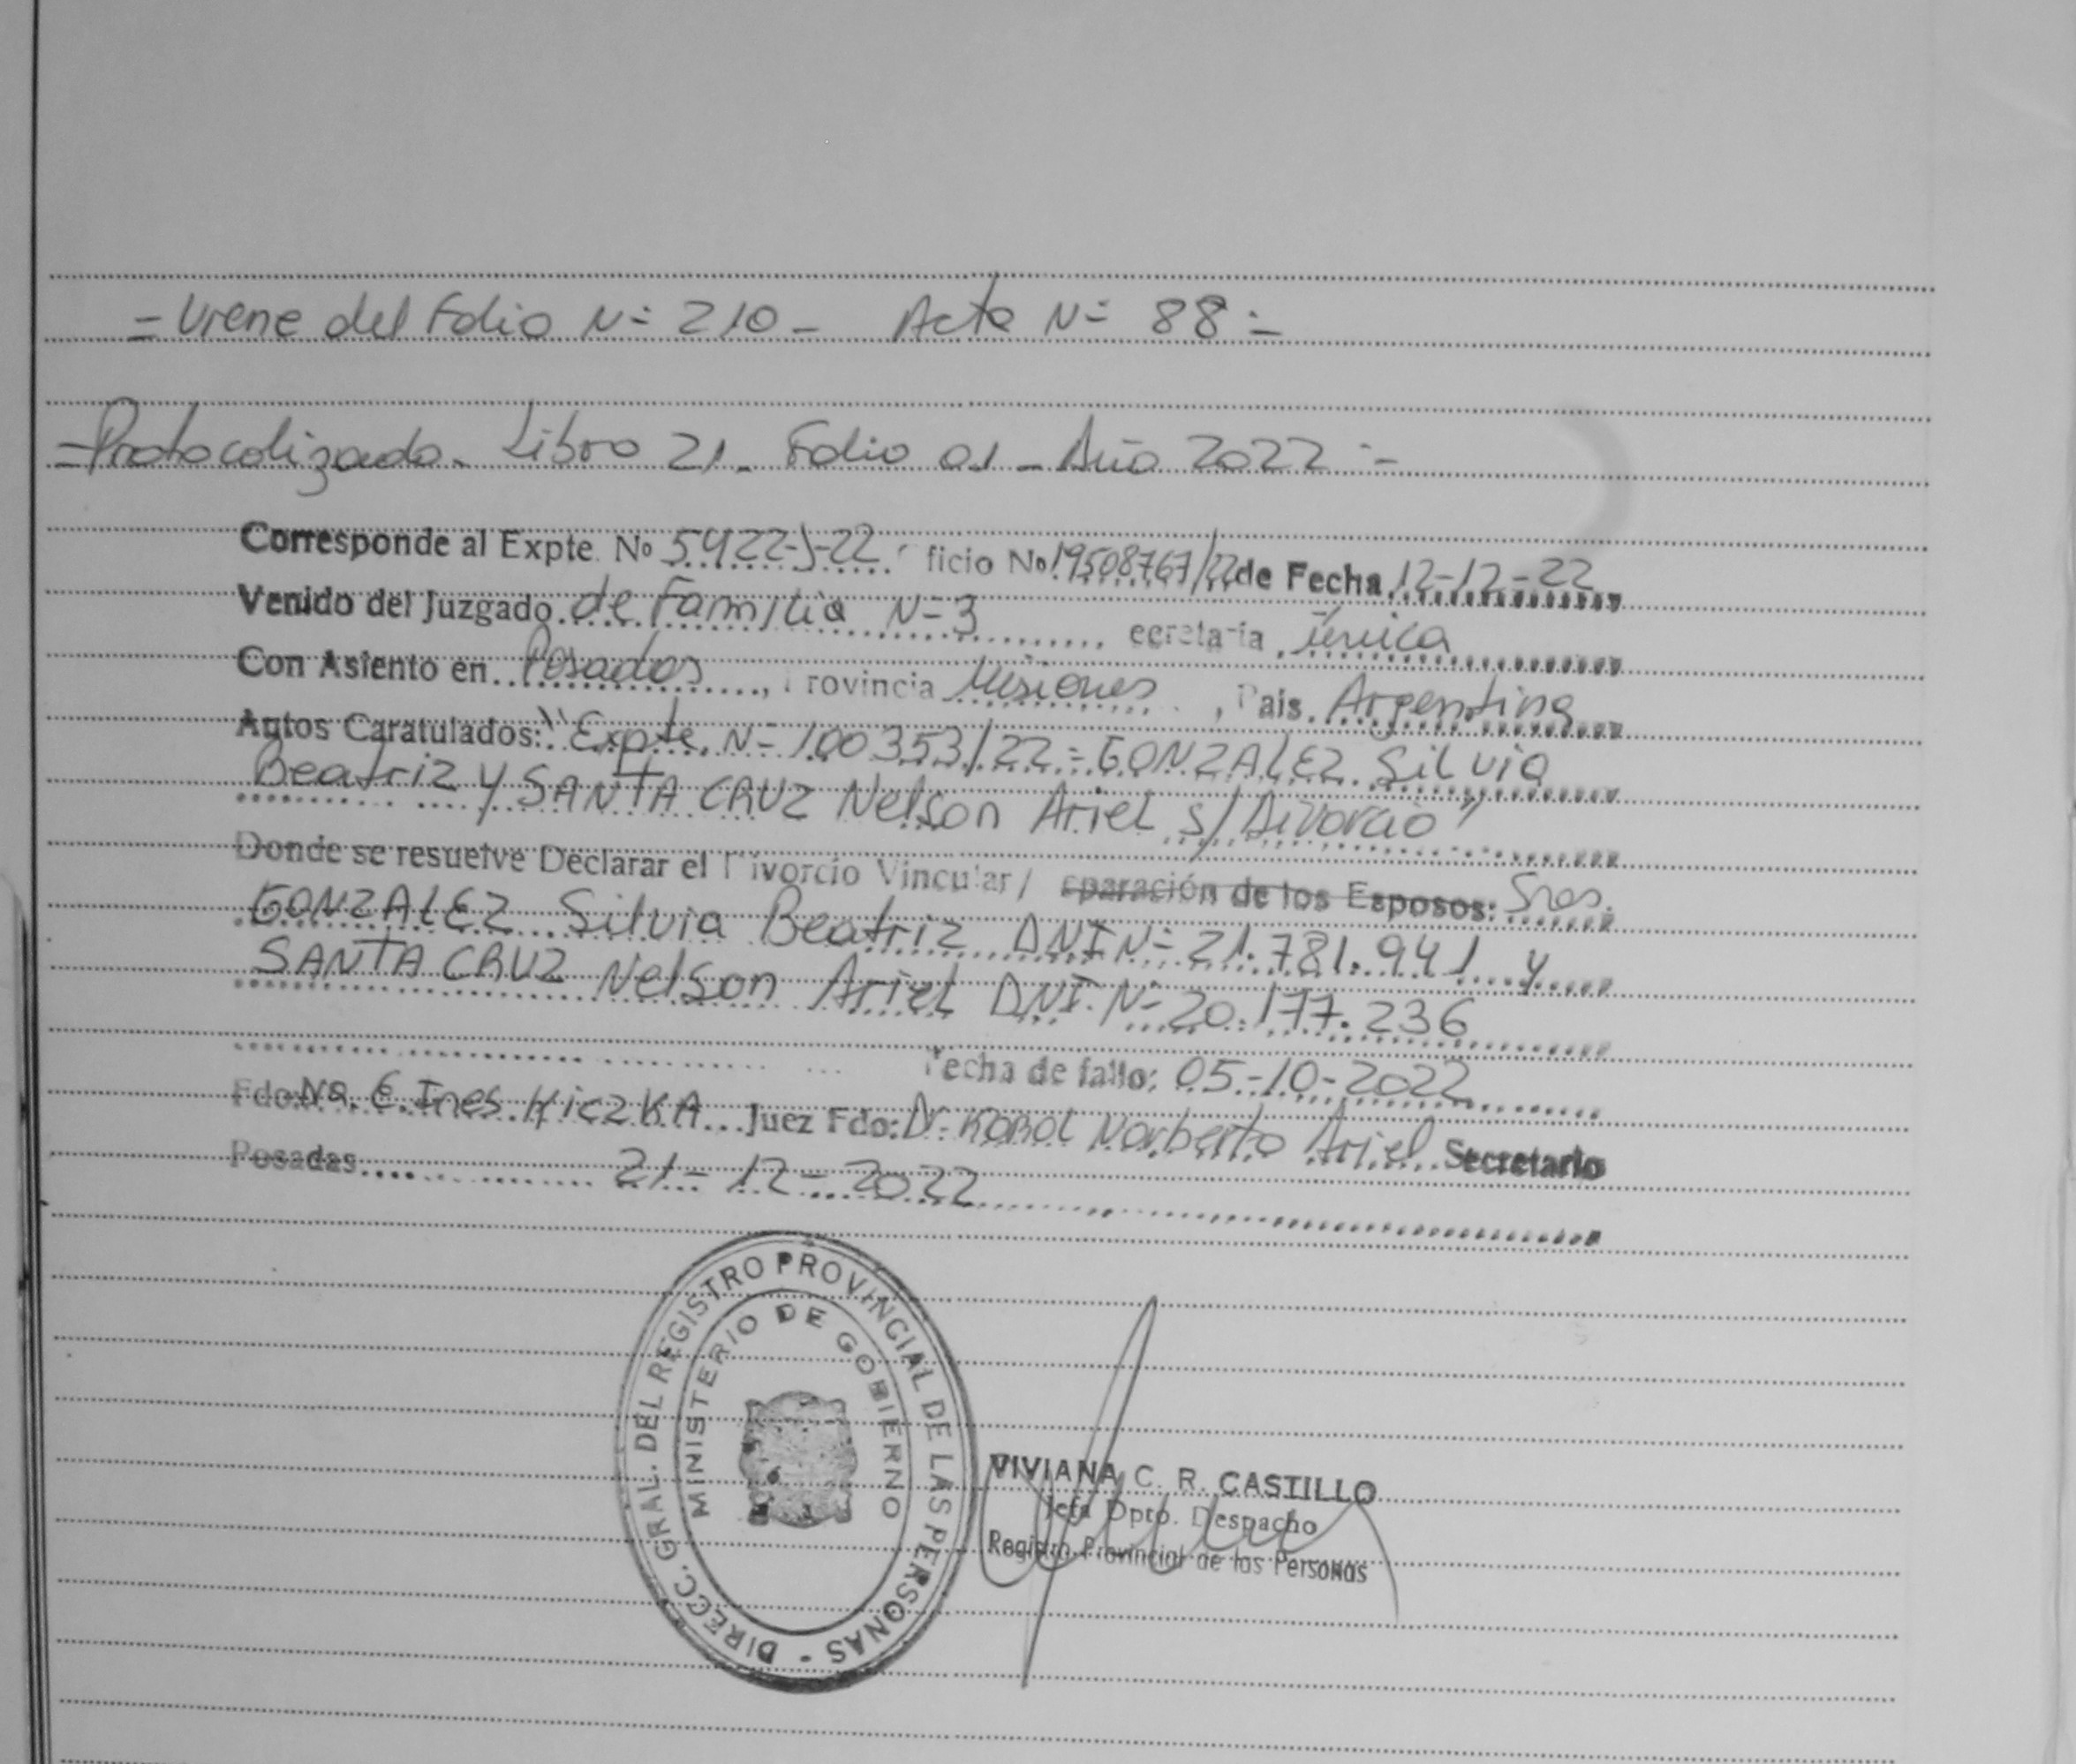 = Viene del Folio Nº 210 - Acta Nº 88 =
= Protocolizado. Libro 21. Folio 01 - Año 2022 =
Corresponde al Expte. Nº 5422-J-22, ficio Nº 19508767/22 de Fecha 12-12-22
Venido del Juzgado de Familia Nº 3, ecretaria única
Con Asiento en Posadas, Provincia Misiones, Pais Argentina
Autos Caratulados: "Expte. Nº 100353/22 = GONZALEZ Silvia
Beatriz y SANTA CRUZ Nelson Ariel s/Divorcio"
Donde se resuelve Declarar el Divorcio Vincular/ eparación de los Esposos: Sres.
GONZALEZ Silvia Beatriz DNI Nº 21.781.941 y
SANTA CRUZ Nelson Ariel DNI Nº 20.177.236
fecha de fallo: 05-10-2022
Fdo: E. Ines HiczKA Juez Fdo: Dr. KOROL Norberto Ariel Secretario
Posadas 21-12-2022
DIRECC. GRAL. DEL REGISTRO PROVINCIAL DE LAS PERSONAS -
MINISTERIO DE GOBIERNO
VIVIANA C. R. CASTILLO
Jefa Dpto. Despacho
Registro Provincial de las Personas